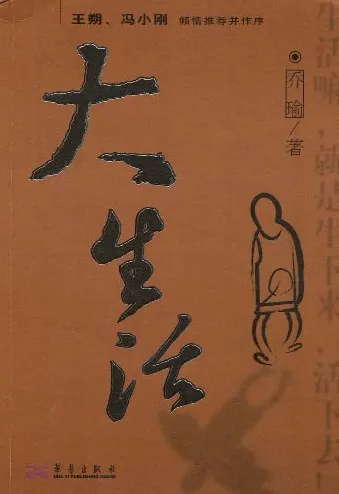 王朔、冯小刚 倾情推荐并作序
大生活
乔瑜/著
生活嘛,就是生下来,活下去
华艺出版社
HUA YI PUBLISHING HOUSE